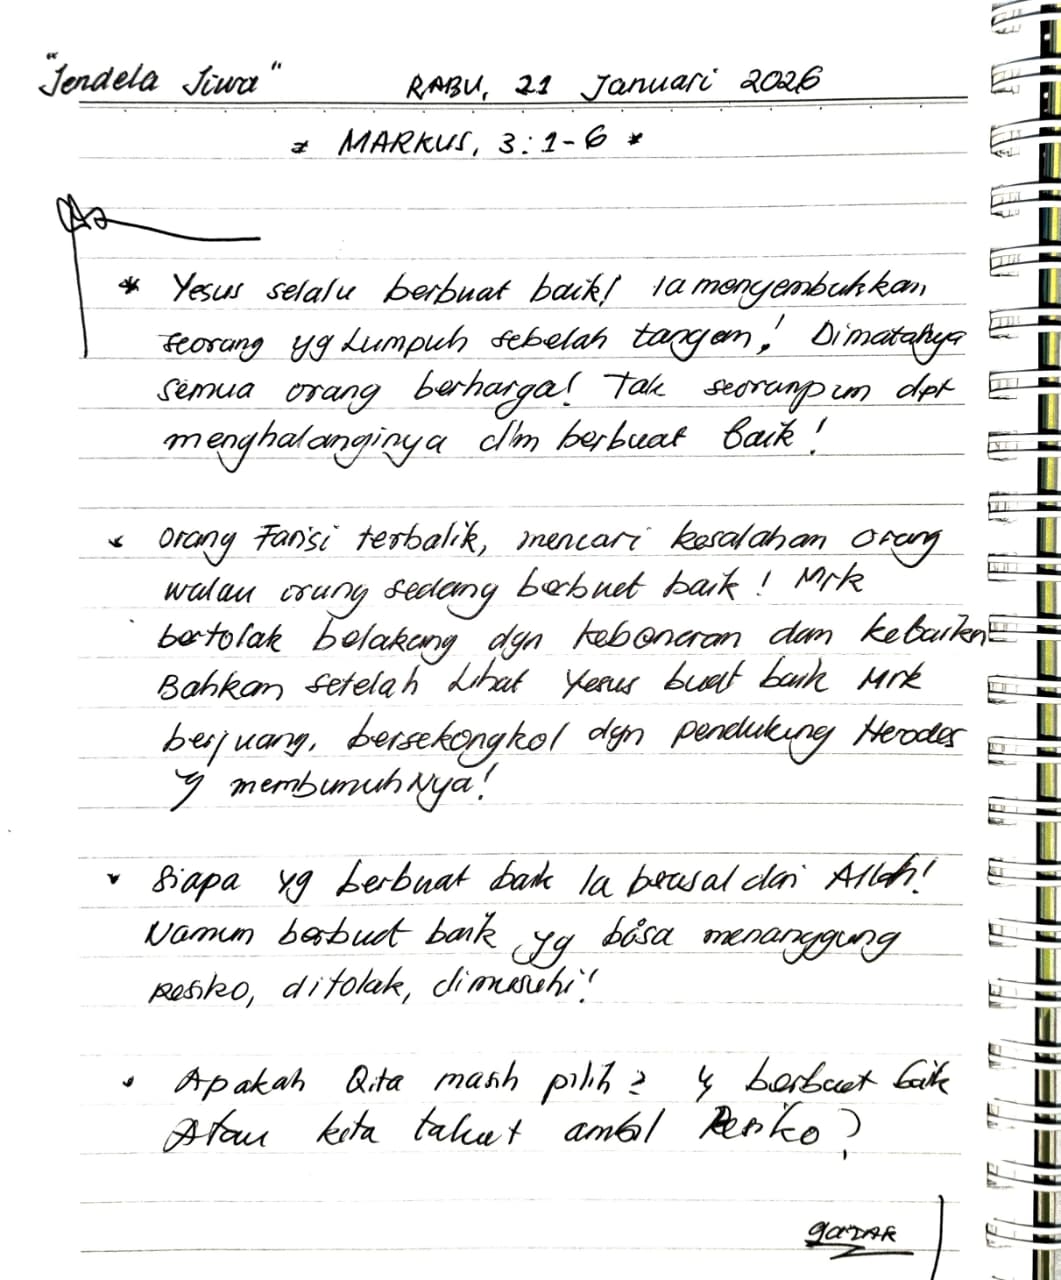 "Jendela Jiwa"    RABU, 21 Januari 2026
* MARKUS, 3:1-6 *
* Yesus selalu berbuat baik! Ia menyembuhkan
seorang yg Lumpuh sebelah tangan! Dimatanya
semua orang berharga! Tak seoranpun dpt
menghalanginya dlm berbuat baik!
* Orang Farisi terbalik, mencari kesalahan orang
walau orang sedang berbuat baik! Mrk
bertolak belakang dgn kebenaran dan kebaikan
Bahkan setelah Lihat Yesus buat baik Mrk
berjuang, bersekongkol dgn pendukung Herodes
membunuhNya!
* Siapa yg berbuat baik Ia berasal dari Allah!
Namun berbuat baik yg bisa menanggung
Resiko, ditolak, dimusuhi!
* Apakah Qita masih pilih2 berbuat baik
Atau kita takut ambil Resiko?